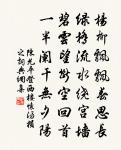 楊柳飄飄春思長
綠桃流水繞宮墻
碧雲望斷空回首
一半闌干無夕陽
陳允平登西樓懷湯損
之詞典網集